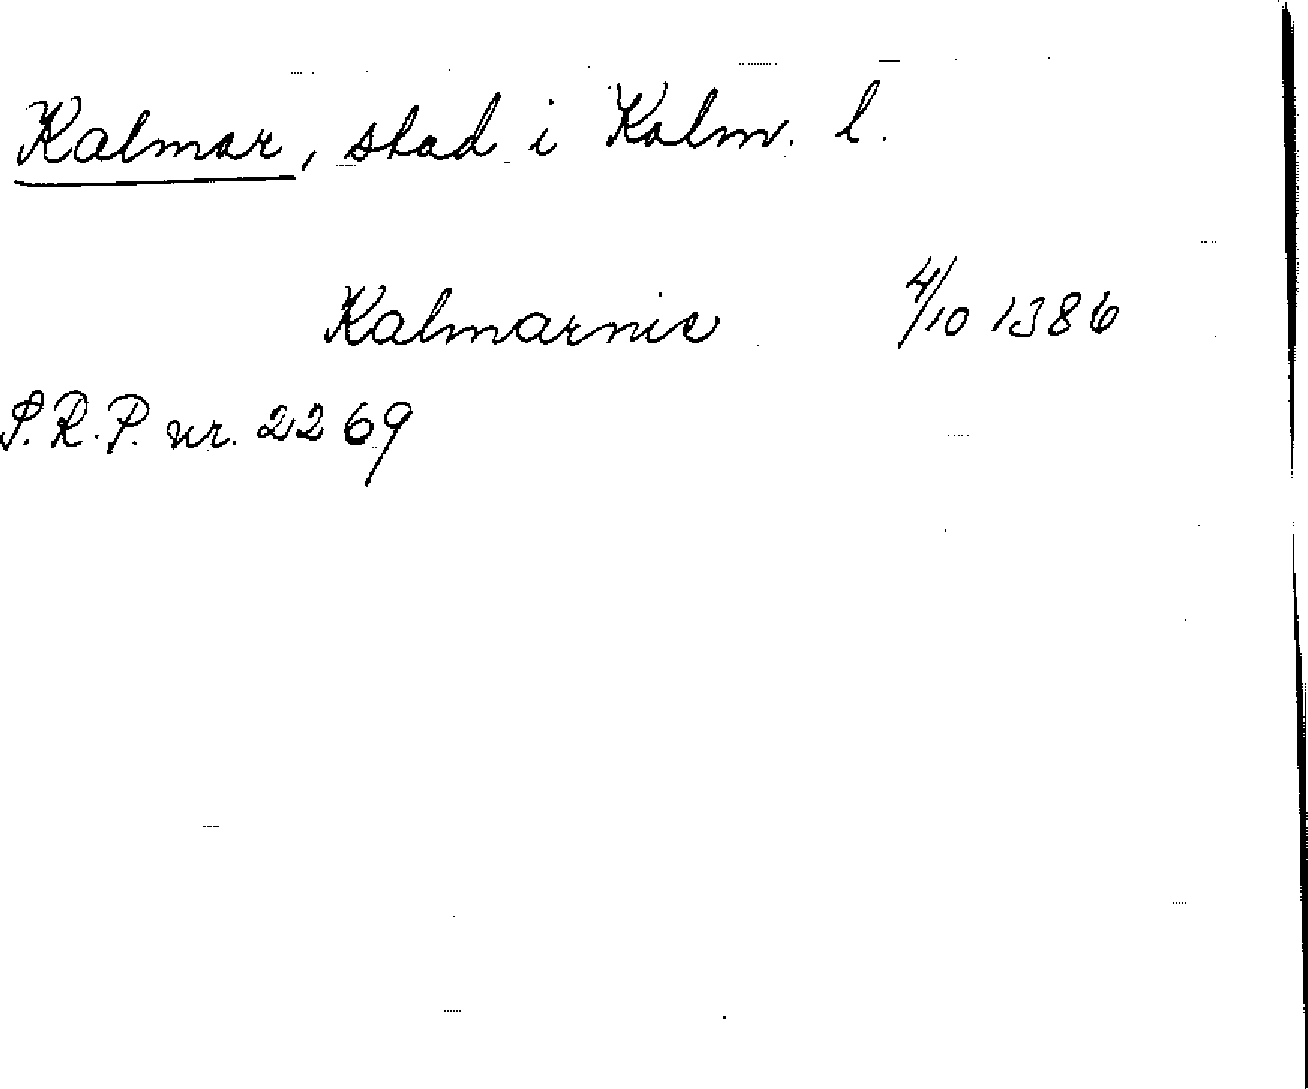 Kalmar, stad i Kalm. l.
Kalmarnie 4/10 1386
S.R.P. nr. 2269